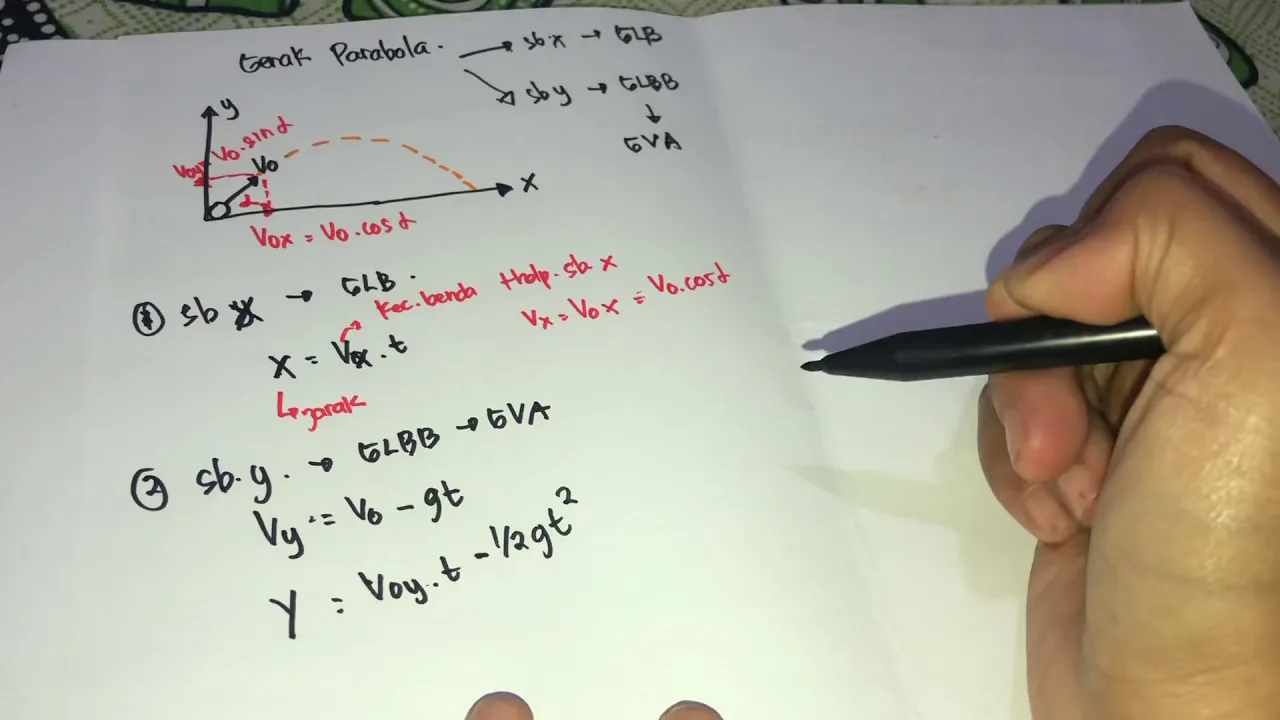 Gerak Parabola. → sb.x → GLB
→ sb y → GLBB
↓
GVA
y
Voy = Vo.sin α
Vo
α
x
Vox = Vo.cos α
① sb x → GLB.
Kec.benda thdp.sb x
Vx = Vox = Vo.cos α
x = Vox.t
↳ jarak
② sb.y. → GLBB → GVA
Vy = Vo - gt
Y = Voy.t - 1/2gt²